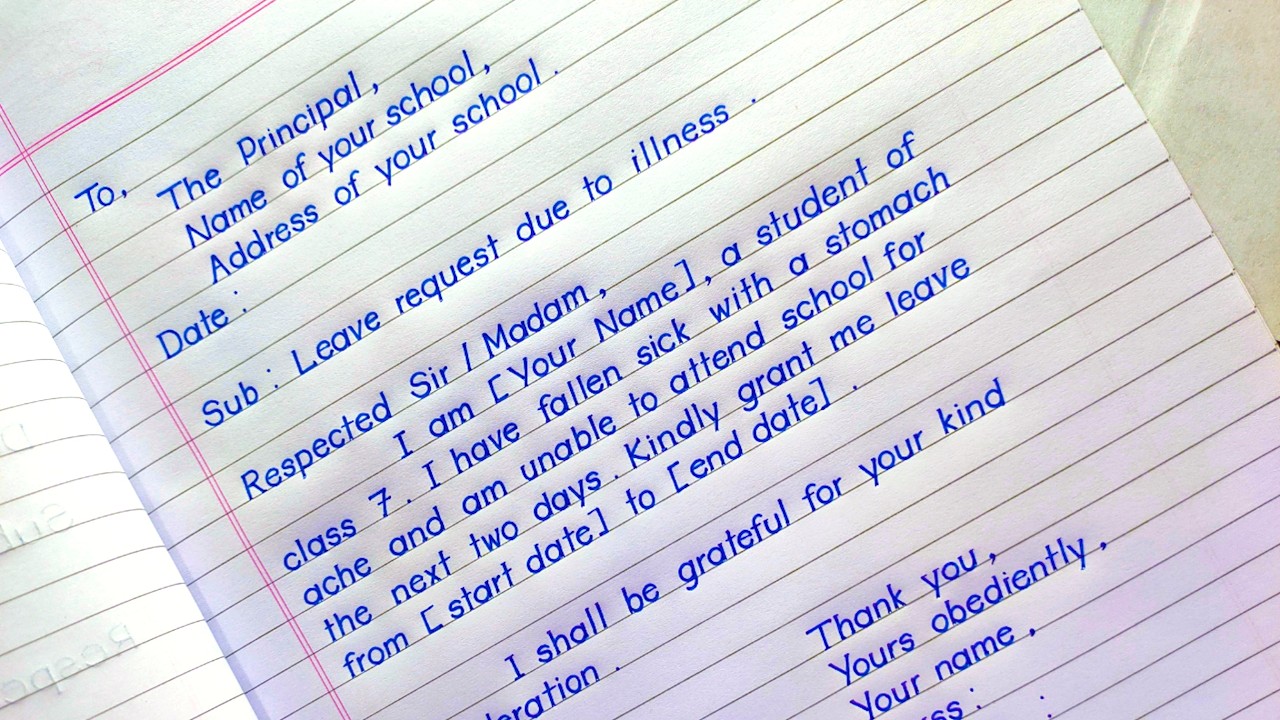 To,
The Principal,
Name of your school,
Address of your school.
Date :
Sub : Leave request due to illness.
Respected Sir / Madam,
I am [Your Name], a student of
class 7. I have fallen sick with a stomach
ache and am unable to attend school for
the next two days. Kindly grant me leave
from [start date] to [end date].
I shall be grateful for your kind
Thank you,
Yours obediently,
Your name,